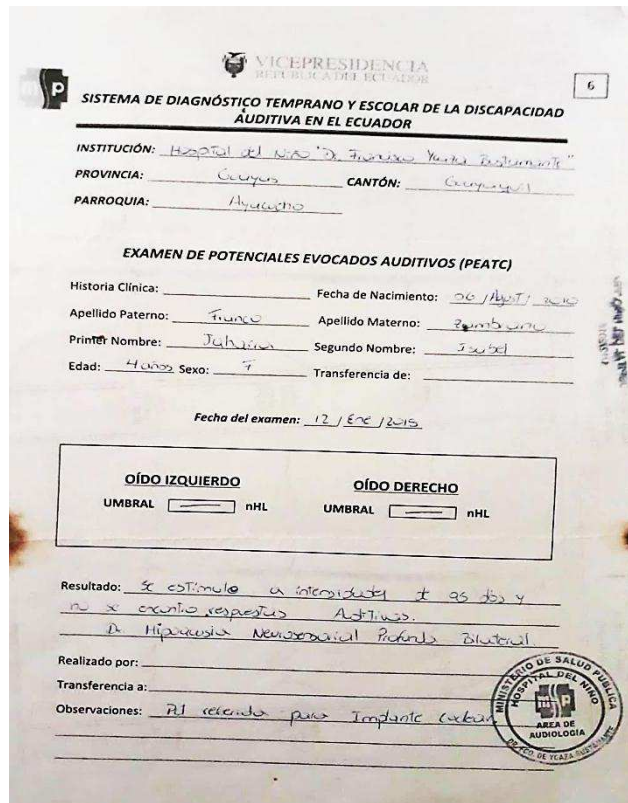 VICEPRESIDENCIA
REPUBLICA DEL ECUADOR
6
SISTEMA DE DIAGNÓSTICO TEMPRANO Y ESCOLAR DE LA DISCAPACIDAD
AUDITIVA EN EL ECUADOR
INSTITUCIÓN: Hospital del Niño "Dr. Francisco Bustamante"
PROVINCIA: Guayas CANTÓN: Guayaquil
PARROQUIA: Ayacucho
EXAMEN DE POTENCIALES EVOCADOS AUDITIVOS (PEATC)
Historia Clínica: Fecha de Nacimiento: 06 / Agst / 2010
Apellido Paterno: Franco Apellido Materno: Zambrano
Primer Nombre: Segundo Nombre: Isabel
Edad: 4 años Sexo: F Transferencia de:
Fecha del examen: 12 / Ene / 2015
OÍDO IZQUIERDO OÍDO DERECHO
UMBRAL nHL UMBRAL nHL
Resultado: Se estimula a intensidades de 95 dbs y
no se respuestas Auditivas.
Hipoacusia Neurosensorial Profunda Bilateral.
Realizado por:
Transferencia a:
Observaciones: referida para Implante coclear
MINISTERIO DE SALUD PUBLICA
HOSPITAL DEL NIÑO
AREA DE
AUDIOLOGIA
DR. FCO. DE YCAZA BUSTAMANTE